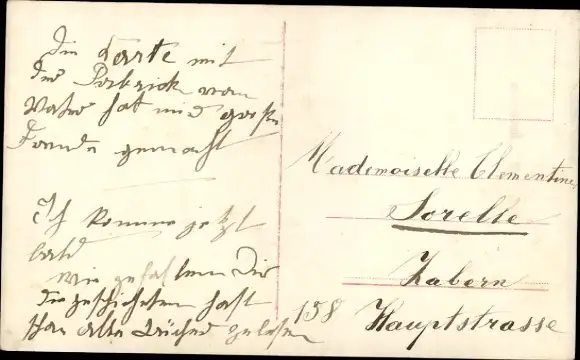 Die Karte mit
der Fabrick vom
Vater hat mir große
Freude gemacht
Ich komme jetzt
bald
wie gefallen Dir
die geschichten hast
schon alle Bücher gelesen
Mademoiselle Clementine
Sorelle
Zabern
158 Hauptstrasse